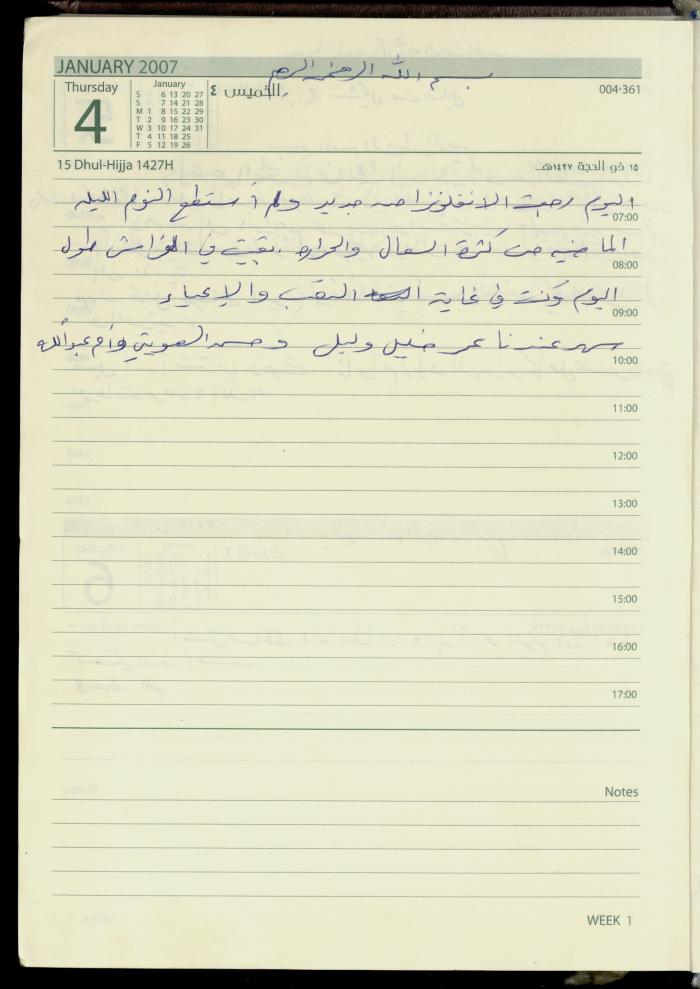 بسم الله الرحمن الرحيم
JANUARY 2007
Thursday
4
January
S 6 13 20 27
S 7 14 21 28
M 1 8 15 22 29
T 2 9 16 23 30
W 3 10 17 24 31
T 4 11 18 25
F 5 12 19 26
الخميس ٤
004-361
15 Dhul-Hijja 1427H
١٥ ذو الحجة ١٤٢٧هـ
اليوم رجعت الانفلونزا من جديد ولم أستطع النوم الليله
07:00
الماضيه من كثرة السعال والحراره. بقيت في الفراش طول
08:00
اليوم وكنت في غاية التعب والإعياء
09:00
سهر عندنا عمر خليل وليل و حمد العويتي وأم عبدالله
10:00
11:00
12:00
13:00
14:00
15:00
16:00
17:00
Notes
WEEK 1